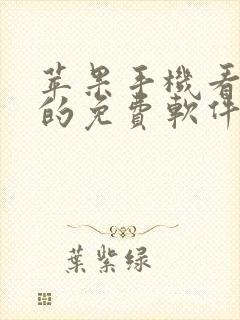 苹果手機看
的免費軟件
葉紫綠